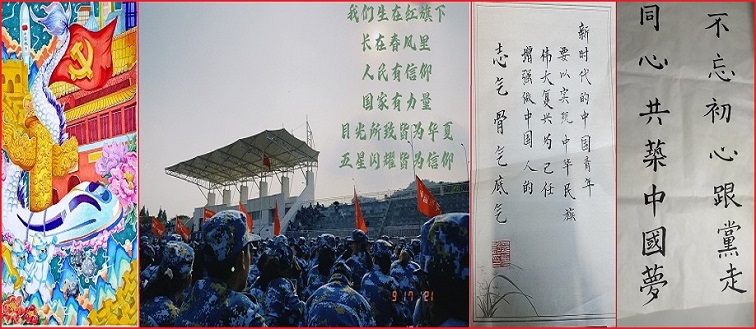 我们生在红旗下
长在春风里
人民有信仰
国家有力量
目光所致皆为华夏
五星闪耀皆为信仰
9 17 '21
新时代的中国青年
要以实现中华民族
伟大复兴为己任
增强做中国人的
志气骨气底气
不忘初心跟黨走
同心共築中國夢